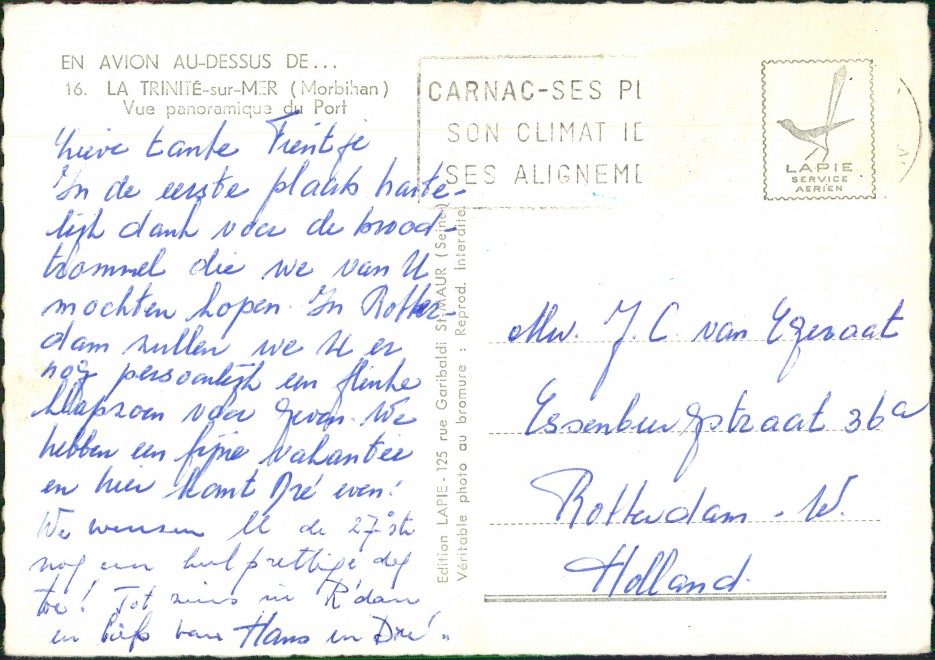 EN AVION AU-DESSUS DE...
16. LA TRINITÉ-sur-MER (Morbihan)
Vue panoramique du Port
Lieve tante Tientje
In de eerste plaats harte-
lijk dank voor de brood-
trommel die we van U
mochten kopen. In Rotter-
dam zullen we U er
nog persoonlijk een flinke
klapzoen voor geven. We
hebben een fijne vakantie
en hier komt Dré even!
We wensen U de 27ste
nog een heel prettige dag
toe! Tot ziens in R'dam
en liefs van Hans en Dré
Edition LAPIE - 125 rue Garibaldi St-MAUR (Seine)
Véritable photo au bromure : Reprod. Interdite
CARNAC-SES PL
SON CLIMAT ID
SES ALIGNEME
LAPIE
SERVICE
AERIEN
Mw. J. C. van Egeraat
Essenburgstraat 36a
Rotterdam - W.
Holland.